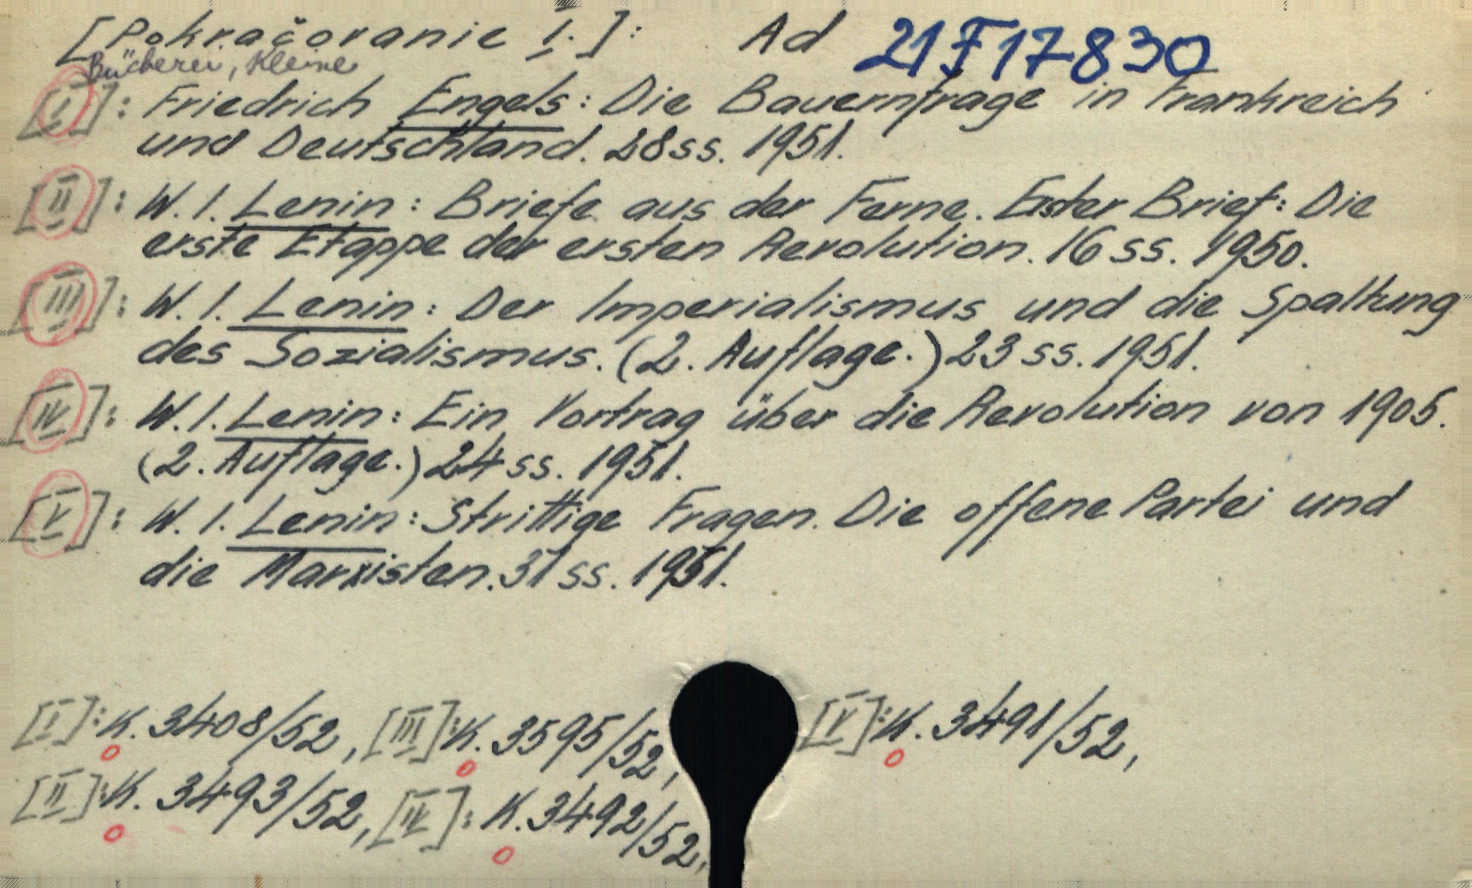 [Pokračovanie I.]: Ad 21 F 17830
Bücherei, Kleine
[I]: Friedrich Engels: Die Bauernfrage in Frankreich
und Deutschland. 28 ss. 1951.
[II]: W. I. Lenin: Briefe aus der Ferne. Erster Brief: Die
erste Etappe der ersten Revolution. 16 ss. 1950.
[III]: W. I. Lenin: Der Imperialismus und die Spaltung
des Sozialismus. (2. Auflage.) 23 ss. 1951.
[IV]: W. I. Lenin: Ein Vortrag über die Revolution von 1905.
(2. Auflage.) 24 ss. 1951.
[V]: W. I. Lenin: Strittige Fragen. Die offene Partei und
die Marxisten. 31 ss. 1951.
[I]: K. 3408/52, [III]: K. 3595/52, [V]: K. 3491/52,
[II]: K. 3493/52, [IV]: K. 3492/52,